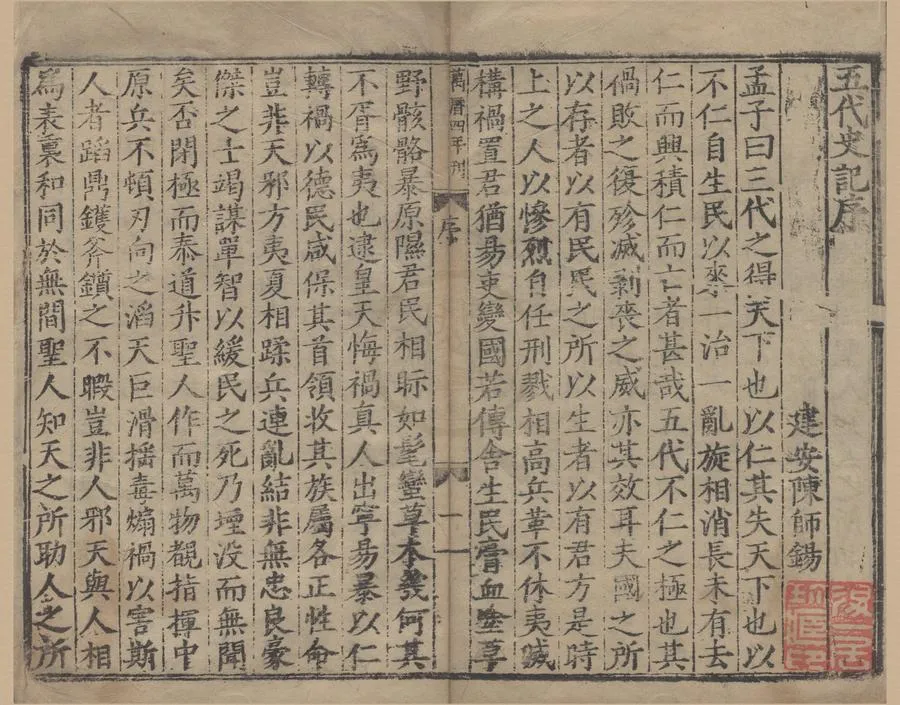 五代史記序
建安陳師錫
孟子曰三代之得天下也以仁其失天下也以
不仁自生民以來一治一亂旋相消長未有去
仁而興積仁而亡者甚哉五代不仁之極也其
禍敗之復殄滅剥喪之威亦其效耳夫國之所
以存者以有民民之所以生者以有君方是時
上之人以慘烈自任刑戮相高兵革不休夷滅
構禍置君猶易吏變國若傳舍生民膏血塗草
萬曆四年刊
序
一
野骸骼暴原隰君民相眎如髦蠻草木幾何其
不胥爲夷也逮皇天悔禍真人出寧易暴以仁
轉禍以德民咸保其首領收其族屬各正性命
豈非天邪方夷夏相蹂兵連亂結非無忠良豪
傑之士竭謀單智以緩民之死乃堙没而無聞
矣否閉極而泰道升聖人作而萬物覩指揮中
原兵不頓刃向之滔天巨滑搖毒煽禍以害斯
人者蹈鼎鑊斧鑕之不暇豈非人邪天與人相
爲表裏和同於無間聖人知天之所助人之所